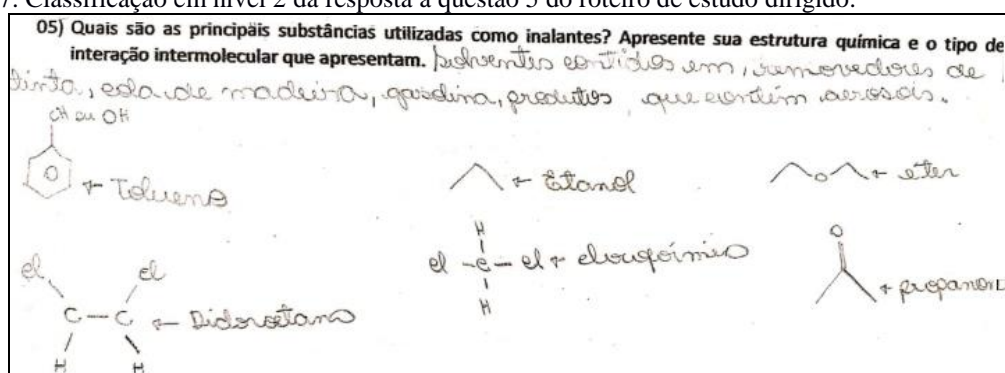 7. Classificação em nível 2 da resposta à questão 5 do roteiro de estudo dirigido.
05) Quais são as principais substâncias utilizadas como inalantes? Apresente sua estrutura química e o tipo de
interação intermolecular que apresentam. Solventes contidos em, removedores de
tinta, cola de madeira, gasolina, produtos que contém aerosois.
CH ou OH
O ← Tolueno
← Etanol
O ← eter
H
Cl - C - Cl ← clorofórmio
H
O
← propanon
Cl Cl
C - C ← Dicloroetano
H H